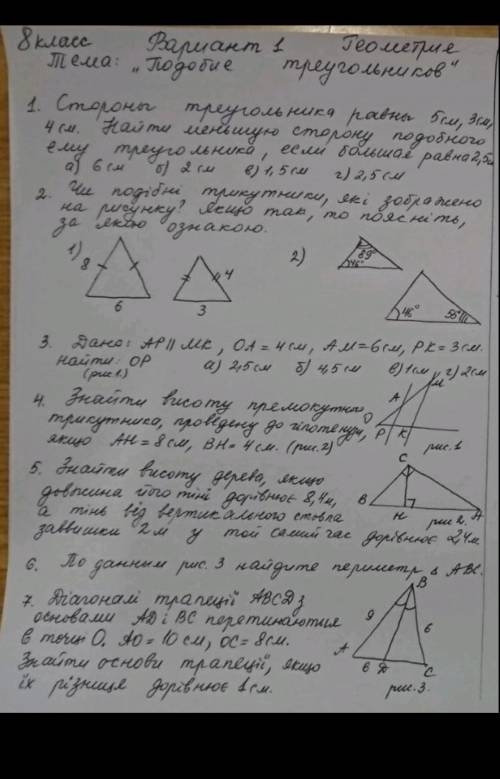 8 класс Вариант 1 Геометрия
Тема: „Подобие треугольников"
1. Стороны треугольника равны 5см, 3см,
4см. Найти меньшую сторону подобного
ему треугольника, если большая равна 2,5см
а) 6см б) 2см в) 1,5см г) 2,5см
2. Чи подібні трикутники, які зображено
на рисунку? Якщо так, то поясніть,
за якою ознакою.
1) 8 6 4 3
2) 89° 46°
46° 55°
3. Дано: AP ∥ MK, OA = 4см, AM = 6см, PK = 3см.
Найти: OP а) 2,5см б) 4,5см в) 1см г) 2см
(рис.1)
M A O P K рис. 1
4. Знайти висоту прямокутного
трикутника, проведену до гіпотенузи,
якщо AH = 8см, BH = 4см. (рис.2)
C B H A рис 2.
5. Знайти висоту дерева, якщо
довжина його тіні дорівнює 8,4м,
а тінь від вертикального стовпа
заввишки 2м у той самий час дорівнює 2,4м.
6. По данным рис. 3 найдите периметр ▵ ABC.
7. Діагоналі трапеції ABCD з
основами AD і BC перетинаються
в точці O. AO = 10см, OC = 8см.
Знайти основи трапеції, якщо
їх різниця дорівнює 1см.
B 9 6 A 6 D C
рис. 3.